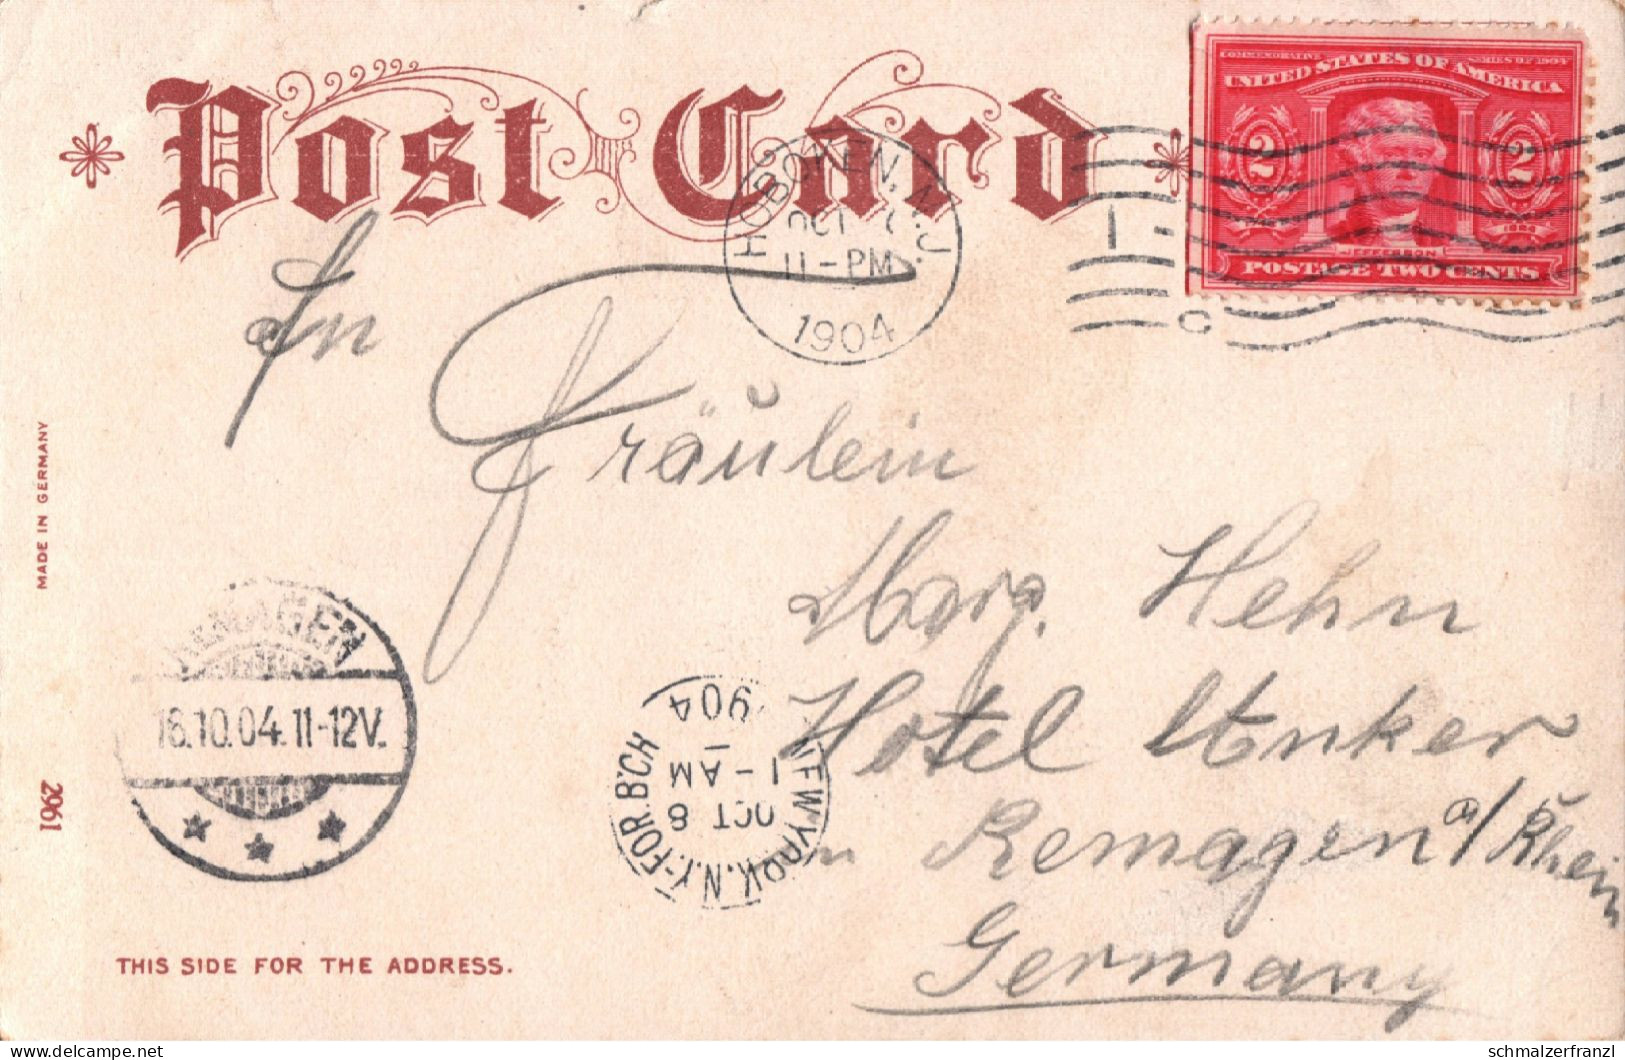 Post Card
COMMEMORATIVE SERIES OF 1904
UNITED STATES OF AMERICA
2 2
JEFFERSON
POSTAGE TWO CENTS
HOBOKEN, N.J.
OCT
11-PM
1904
1
C
An
Fräulein
Marg. Hehn
Hotel Anker
in Remagen a/Rhein
Germany
MADE IN GERMANY
2961
REMAGEN
16.10.04.11-12V.
OCT 8
1-AM
1904
THIS SIDE FOR THE ADDRESS.
schmalzerfranzl
DELCAMPE.NET